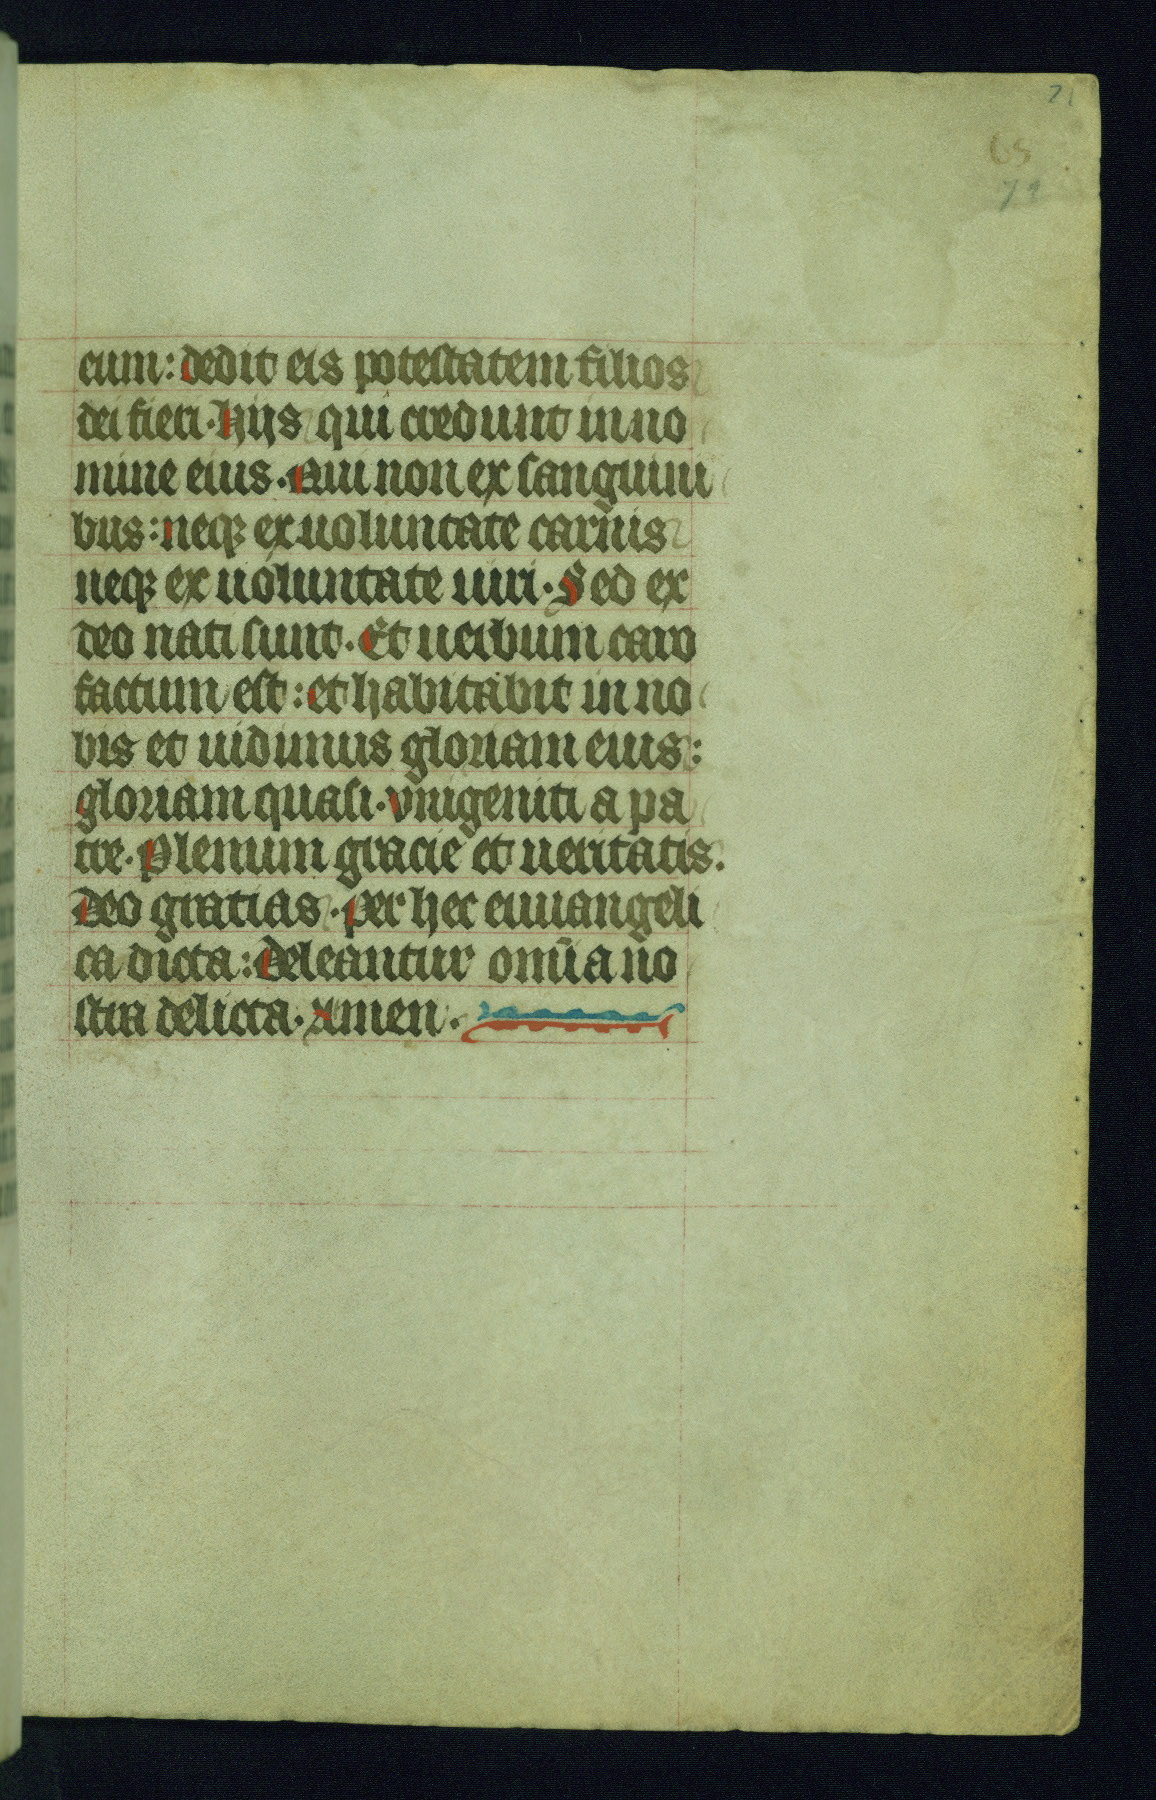 71
65
71
eum: dedit eis potestatem filios
dei fieri. hijs qui credunt in no
mine eius. Qui non ex sanguini
bus: neqꝫ ex uoluntate carnis
neqꝫ ex uoluntate uiri. Sed ex
deo nati sunt. Et uerbum caro
factum est: et habitabit in no
bis et uidimus gloriam eius:
gloriam quasi. vnigeniti a pa
tre. Plenum gracie et ueritatis.
Deo gratias. per hec euuangeli
ca dicta: Deleantur om̄ia no
stra delicta. Amen.